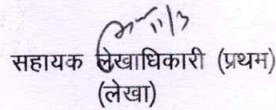 सहायक लेखाधिकारी (प्रथम)
(लेखा)